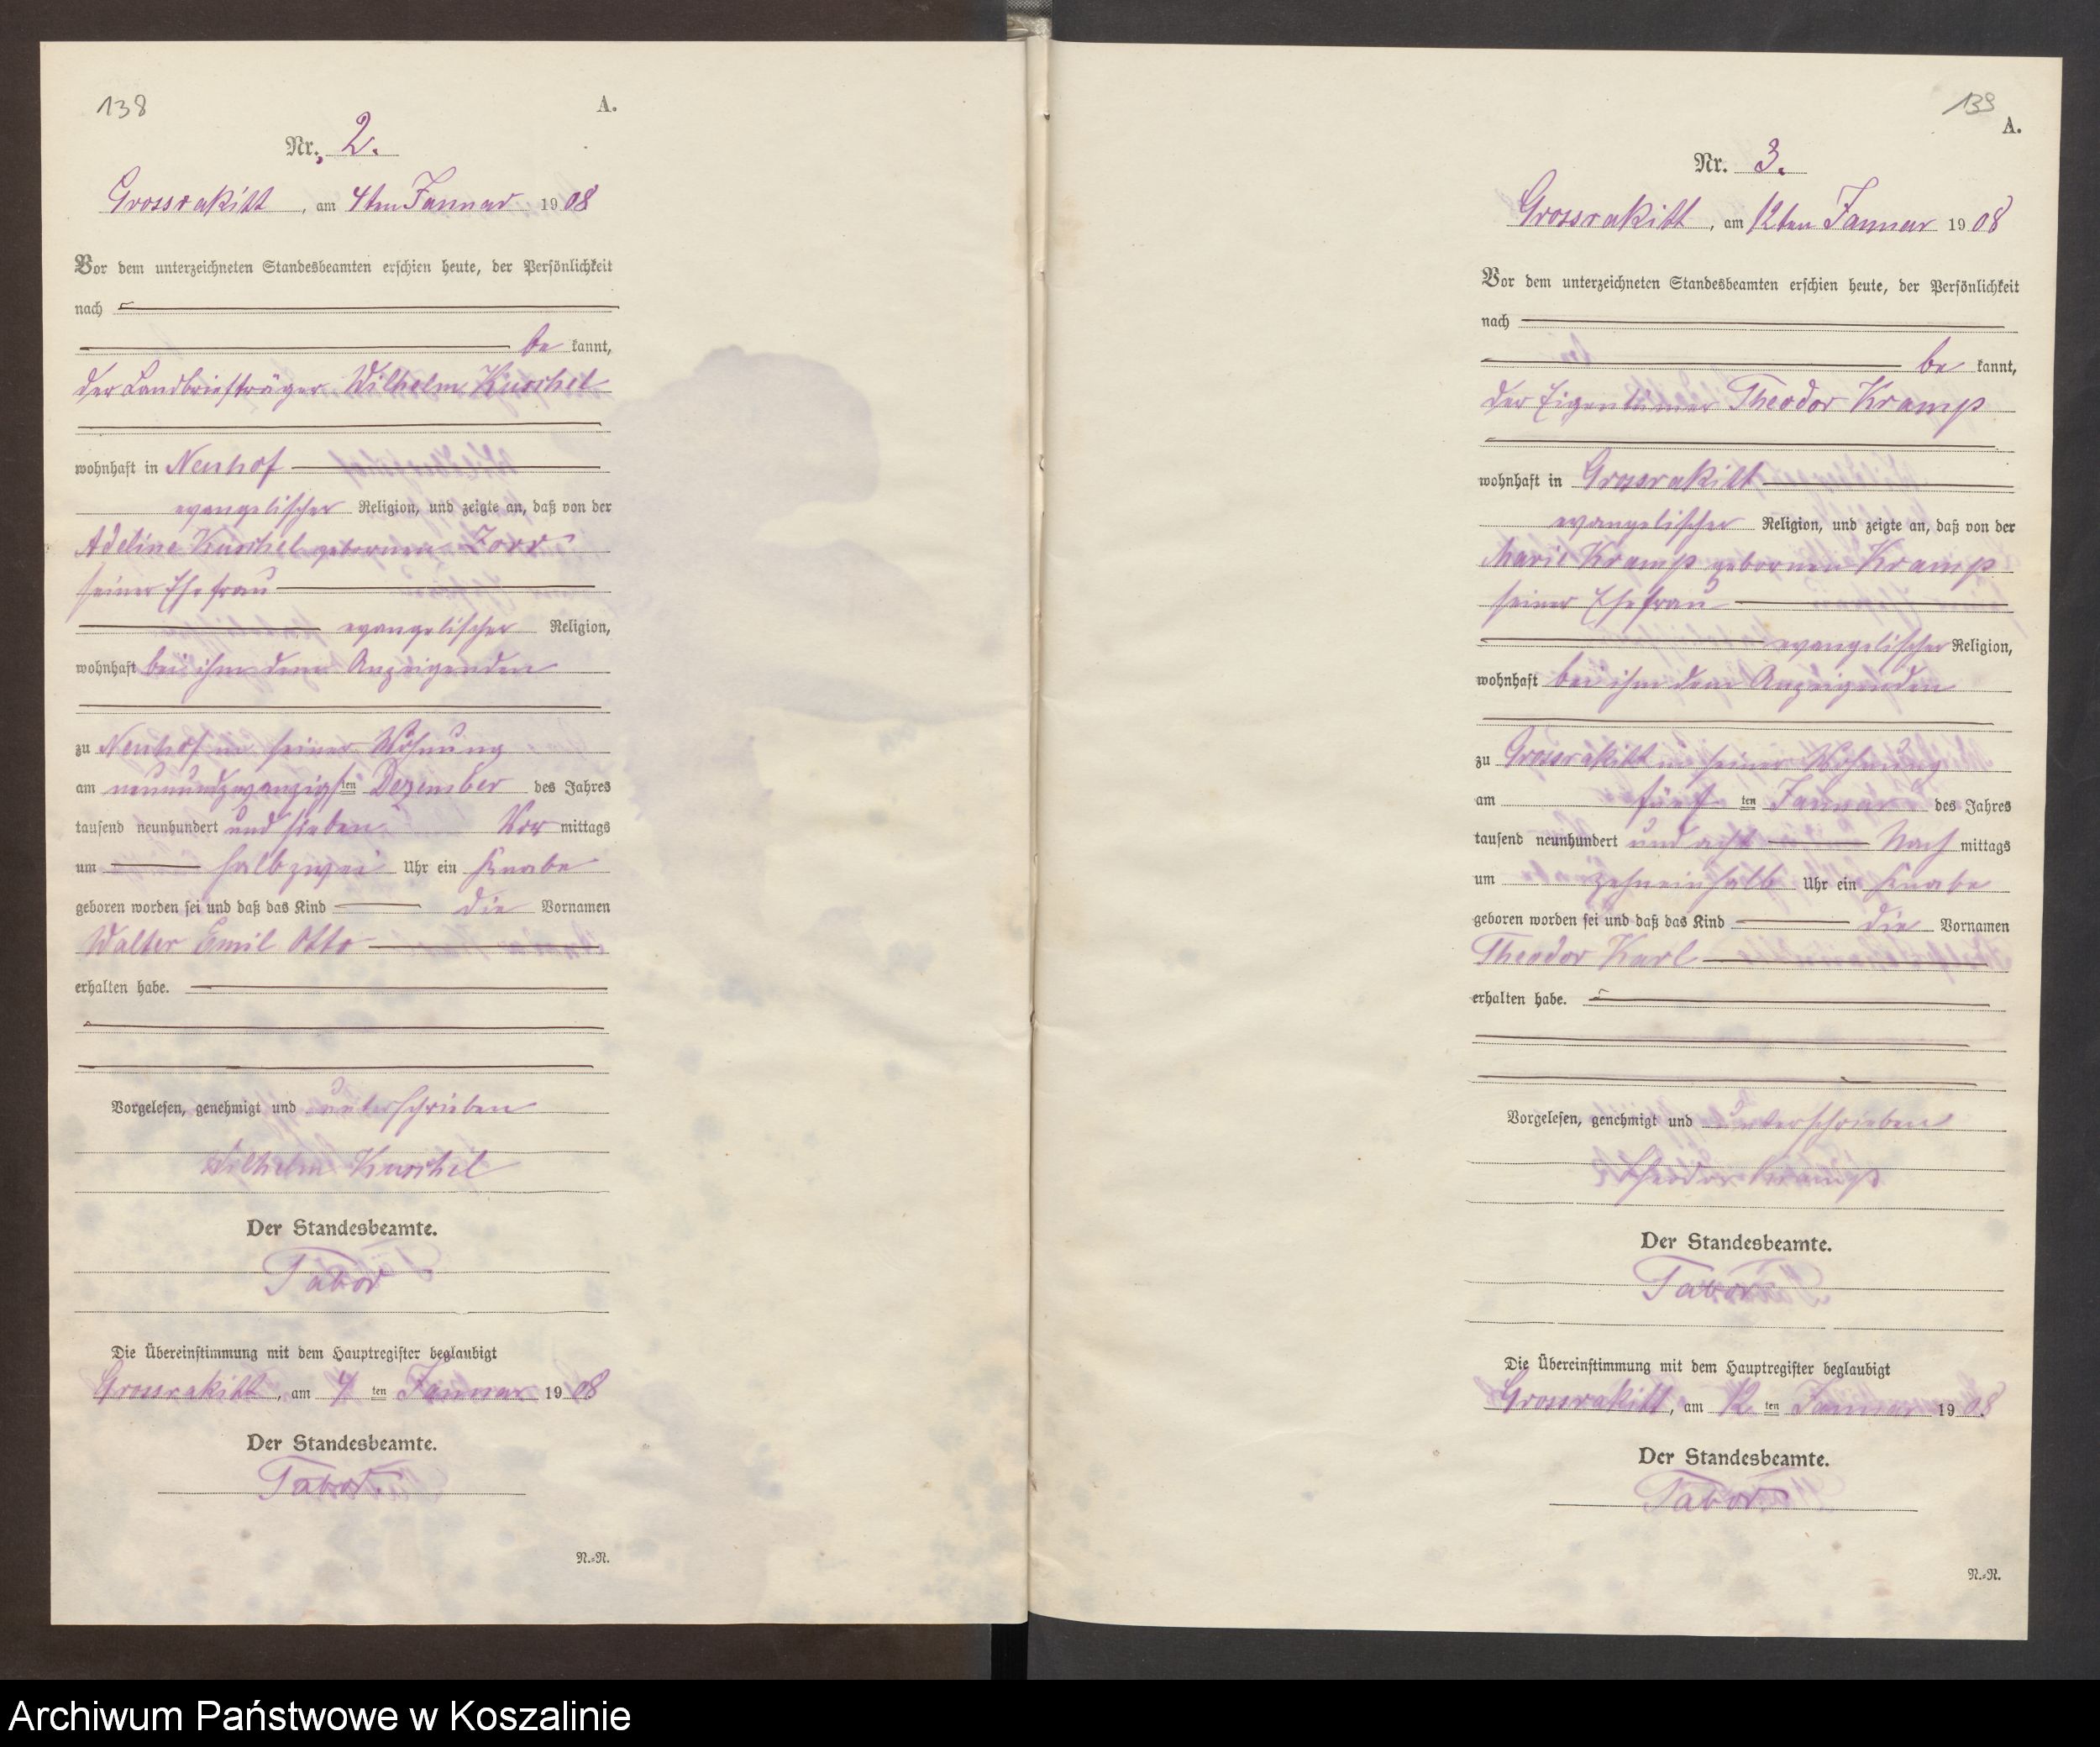 138
A.
Nr. 2.
Grossrakitt, am 4ten Januar 1908
Vor dem unterzeichneten Standesbeamten erschien heute, der Persönlichkeit
nach
be kannt,
der Landbriefträger Wilhelm Kuschel
wohnhaft in Neuhof
evangelischer Religion, und zeigte an, daß von der
Adeline Kuschel gebornen Zorr
seiner Ehefrau
evangelischer Religion,
wohnhaft bei ihm dem Anzeigenden
zu Neuhof in seiner Wohnung
am neunundzwanzigsten Dezember des Jahres
tausend neunhundert und sieben Vor mittags
um halb zwei Uhr ein Knabe
geboren worden sei und daß das Kind die Vornamen
Walter Emil Otto
erhalten habe.
Vorgelesen, genehmigt und unterschrieben
Wilhelm Kuschel
Der Standesbeamte.
Tabor
Die Übereinstimmung mit dem Hauptregister beglaubigt
Grossrakitt, am 4 ten Januar 1908
Der Standesbeamte.
Tabor.
N.=N.
139
A.
Nr. 3.
Grossrakitt, am 12ten Januar 1908
Vor dem unterzeichneten Standesbeamten erschien heute, der Persönlichkeit
nach
be kannt,
der Eigentümer Theodor Kramp
wohnhaft in Grossrakitt
evangelischer Religion, und zeigte an, daß von der
Marie Kramp gebornen Kramp
seiner Ehefrau
evangelischer Religion,
wohnhaft bei ihm dem Anzeigenden
zu Grossrakitt in seiner Wohnung
am fünf ten Januar des Jahres
tausend neunhundert und acht Nach mittags
um zehneinhalb Uhr ein Knabe
geboren worden sei und daß das Kind die Vornamen
Theodor Karl
erhalten habe.
Vorgelesen, genehmigt und unterschrieben
Theodor Kramp
Der Standesbeamte.
Tabor
Die Übereinstimmung mit dem Hauptregister beglaubigt
Grossrakitt, am 12 ten Januar 1908.
Der Standesbeamte.
Tabor
N.=N.
Archiwum Państwowe w Koszalinie